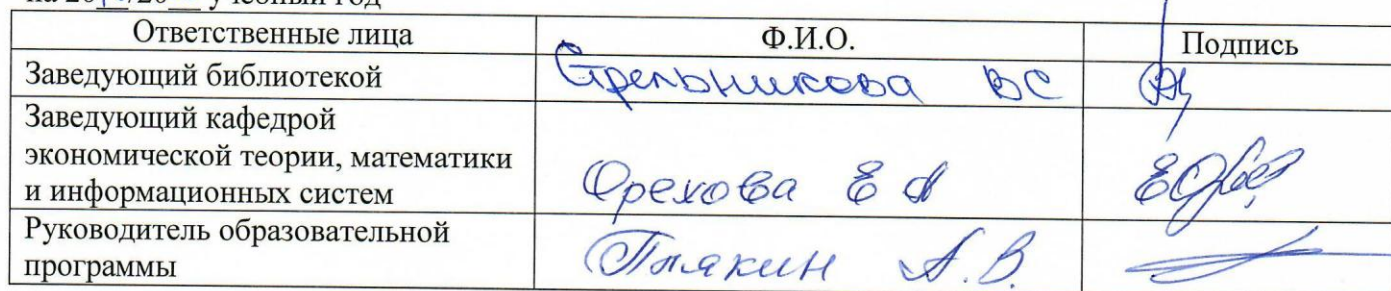 учебный год
Ответственные лица Ф.И.О. Подпись
Заведующий библиотекой Стрельникова ВС
Заведующий кафедрой
экономической теории, математики
и информационных систем Орехова Е А
Руководитель образовательной
программы Плякин А.В.